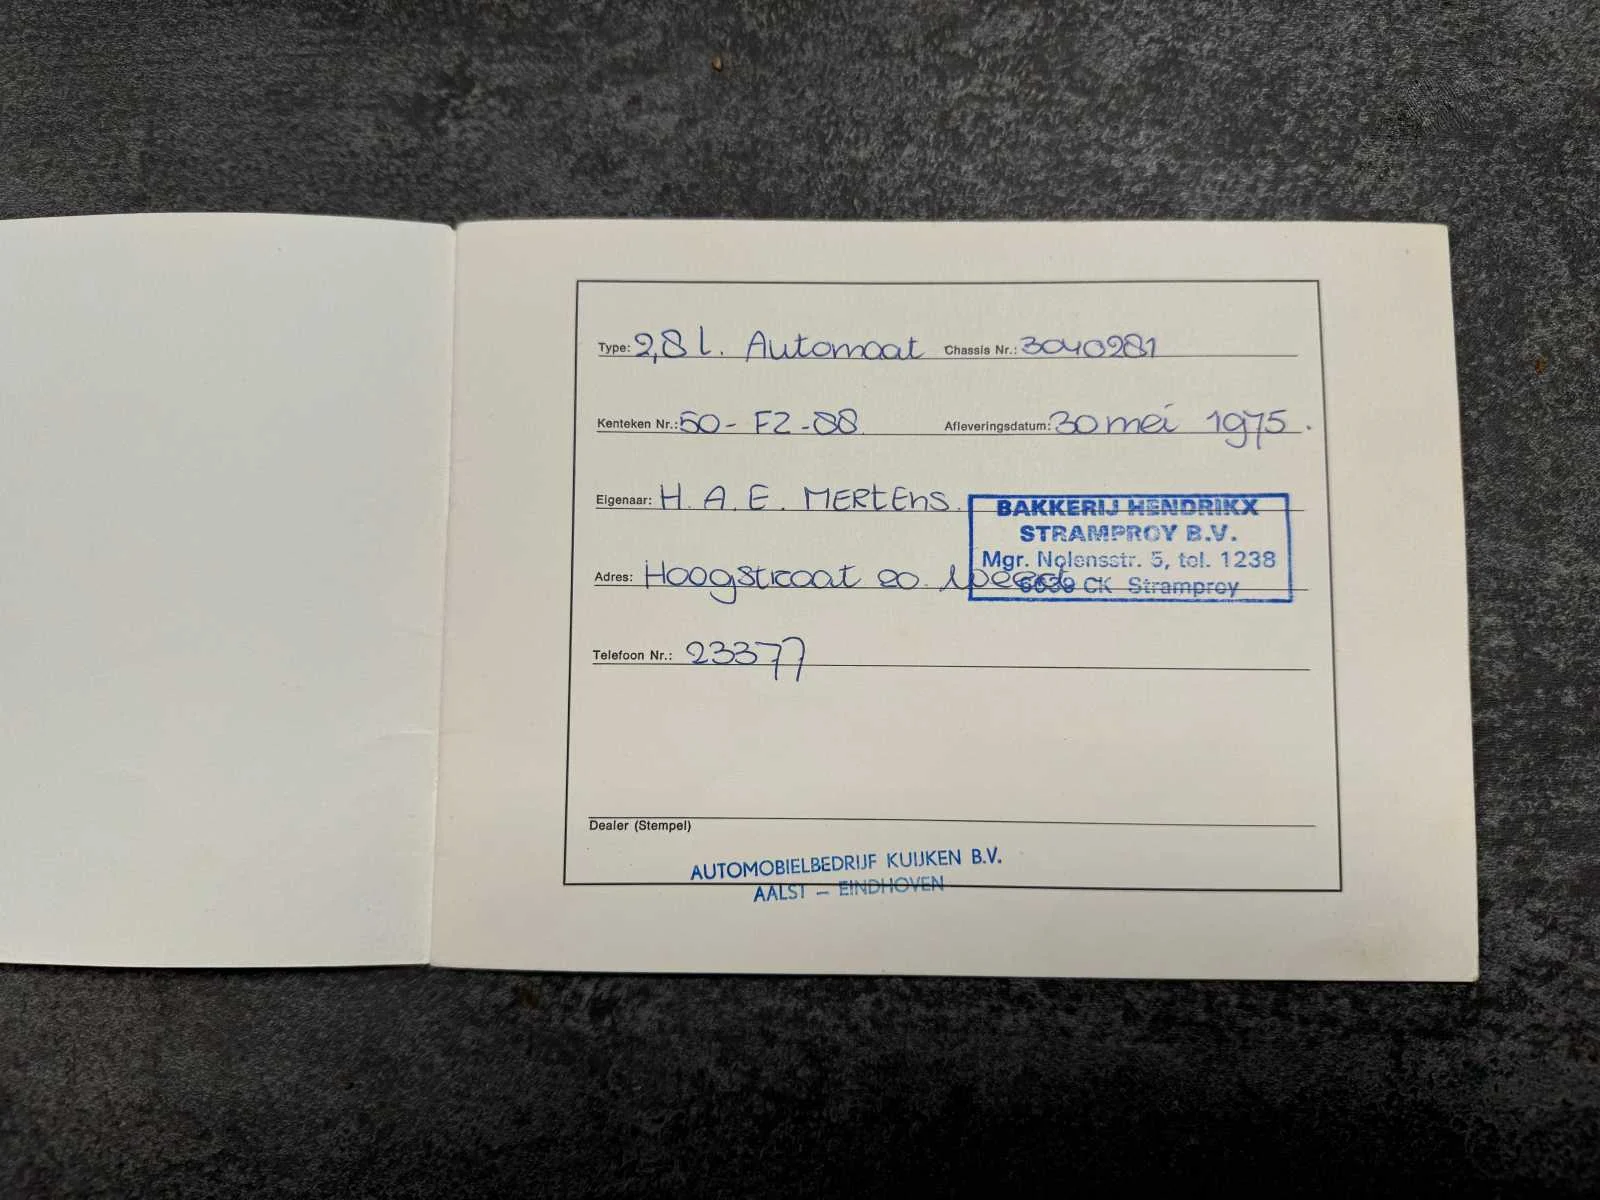 Type: 2,8 l. Automaat Chassis Nr.: 3040281
Kenteken Nr.: 50-FZ-88 Afleveringsdatum: 30 mei 1975.
Eigenaar: H.A.E. MERtEnS.
BAKKERIJ HENDRIKX
STRAMPROY B.V.
Mgr. Nolensstr. 5, tel. 1238
6039 CK Stramproy
Adres: Hoogstraat 20. Weert
Telefoon Nr.: 23377
Dealer (Stempel)
AUTOMOBIELBEDRIJF KUIJKEN B.V.
AALST – EINDHOVEN